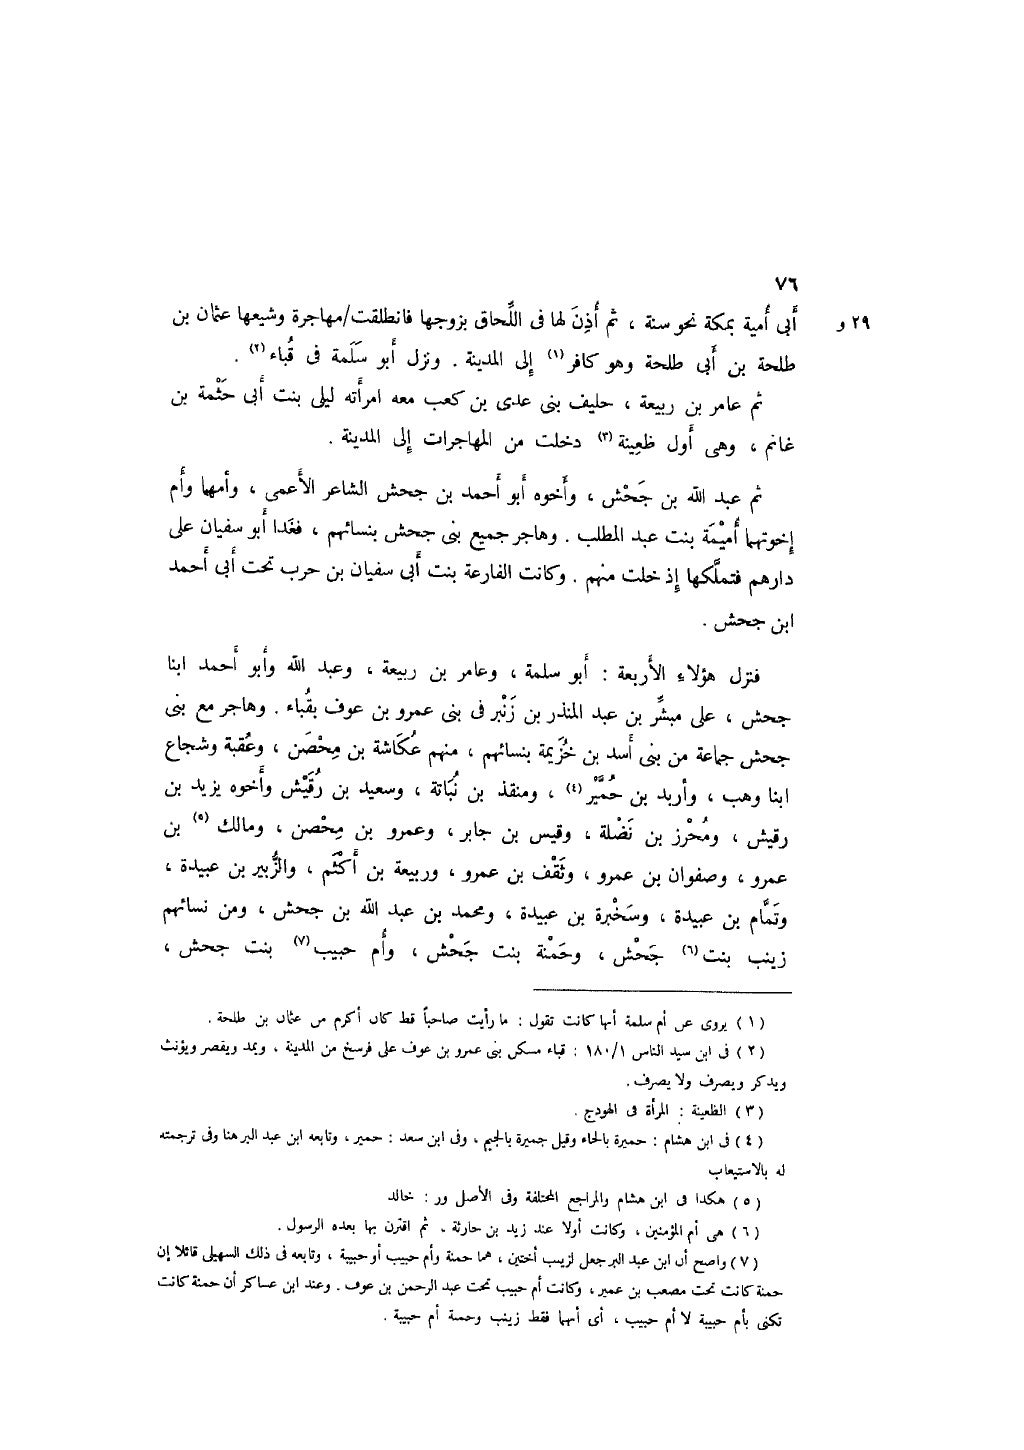 ٧٦
٢٩ و أَبى أُمية بمكة نحو سنة ، ثم أُذِنَ لها فى اللَّحاق بزوجها فانطلقت/مهاجرة وشيعها عثمان بن
طلحة بن أَبى طلحة وهو كافر(١) إلى المدينة . ونزل أَبو سَلَمة فى قُباء(٢) .
ثم عامر بن ربيعة ، حليف بنى عدى بن كعب معه امرأَته ليلى بنت أَبى حَثْمة بن
غانم ، وهى أَول ظَعِينة(٣) دخلت من المهاجرات إِلى المدينة .
ثم عبد الله بن جَحْش ، وأَخوه أَبو أَحمد بن جحش الشاعر الأَعمى ، وأمهما وأُم
إِخوتهما أُميْمَة بنت عبد المطلب . وهاجر جميع بنى جحش بنسائهم ، فغَدا أَبو سفيان على
دارهم فتملَّكها إِذ خلت منهم . وكانت الفارعة بنت أَبى سفيان بن حرب تحت أَبى أَحمد
ابن جحش .
فنزل هؤلاءِ الأَربعة : أَبو سلمة ، وعامر بن ربيعة ، وعبد الله وأَبو أَحمد ابنا
جحش ، على مبشِّر بن عبد المنذر بن زَنْبر فى بنى عمرو بن عوف بقُباء . وهاجر مع بنى
جحش جماعة من بنى أَسد بن خُزَيمة بنسائهم ، منهم عُكَاشة بن مِحْصَن ، وعُقبة وشجاع
ابنا وهب ، وأربد بن حُمَيَّرْ(٤) ، ومنقذ بن نُبَاتة ، وسعيد بن رُقَيْش وأَخوه يزيد بن
رقيش ، ومُحْرز بن نَضْلة ، وقيس بن جابر ، وعمرو بن مِحْصن ، ومالك(٥) بن
عمرو ، وصفوان بن عمرو ، وثَقْف بن عمرو ، وربيعة بن أَكْثَم ، والزُّبير بن عبيدة ،
وتَمَّام بن عبيدة ، وسَخْبرة بن عبيدة ، ومحمد بن عبد الله بن جحش ، ومن نسائهم
زينب بنت(٦) جَحْش ، وحَمْنة بنت جَحْش ، وأُم حبيب(٧) بنت جحش ،
(١) يروى عن أم سلمة أنها كانت تقول : ما رأيت صاحباً قط كان أكرم من عثمان بن طلحة .
(٢) فى ابن سيد الناس ١٨٠/١ : قباء مسكن بنى عمرو بن عوف على فرسخ من المدينة ، ويمد ويقصر ويؤنث
ويذكر ويصرف ولا يصرف .
(٣) الظعينة : المرأة فى الهودج .
(٤) فى ابن هشام : حميرة بالحاء وقيل جميرة بالجيم ، وفى ابن سعد : حمير ، وتابعه ابن عبد البر هنا وفى ترجمته
له بالاستيعاب
(٥) هكذا فى ابن هشام والمراجع المختلفة وفى الأصل ور : خالد
(٦) هى أم المؤمنين ، وكانت أولا عند زيد بن حارثة . ثم اقترن بها بعده الرسول .
(٧) واضح أن ابن عبد البر جعل لزينب أختين ، هما حمنة وأم حبيب أو حبيبة ، وتابعه فى ذلك السهيلى قائلا إن
حمنة كانت تحت مصعب بن عمير ، وكانت أم حبيب تحت عبد الرحمن بن عوف . وعند ابن عساكر أن حمنة كانت
تكنى بأم حبيبة لا أم حبيب ، أى أنهما فقط زينب وحمنة أم حبيبة .